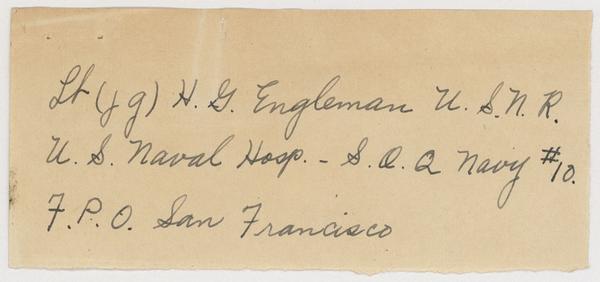 Lt (jg) H. G. Engleman U. S. N. R.
U. S. Naval Hosp. - S. O. Q Navy #10.
F. P. O. San Francisco